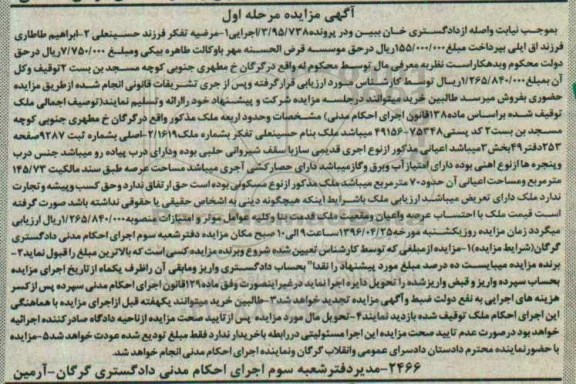 آگهی مزایده مرحله اول
بموجب نیابت واصله از دادگستری خان ببین ودر پرونده۳/۹۵/۷۳۸اجرایی۱-مرضیه تفکر فرزند حسینعلی ۲-ابراهیم طاطاری
فرزند اق ایلی بپرداخت مبلغ۱۵۵/۰۰۰/۰۰۰ریال درحق موسسه قرض الحسنه مهر باوکالت طاهره بیکی ومبلغ ۷/۷۵۰/۰۰۰ریال درحق
دولت محکوم وبدهکاراست نظریه معرفی مال توسط محکوم له واقع درگرگان خ مطهری جنوبی کوچه مسجد بن بست ۲توقیف وکل
آن بمبلغ۱/۲۶۵/۸۴۰/۰۰۰ریال توسط کارشناس مورد ارزیابی قرارگرفته وپس از جری تشریفات قانونی انجام شده ازطریق مزایده
حضوری بفروش میرسد طالبین خرید میتوانند درجلسه مزایده شرکت و پیشنهاد خود راارائه وتسلیم نمایند(توصیف اجمالی ملک
توقیف شده براساس ماده۱۳۸قانون اجرای احکام مدنی) مشخصات وحدود اربعه ملک مذکور واقع درگرگان خ مطهری جنوبی کوچه
مسجد بن بست۲ کد پستی۷۵۳۴۸-۴۹۱۵۶ میباشد ملک بنام حسینعلی تفکر بشماره ملک۲/۱۶۱۹-اصلی بشماره ثبت ۹۲۸۷صفحه
۲۵۳دفتر۴۹بخش۳میباشد اعیانی مذکور ازنوع اجری قدیمی سازبا سقف شیروانی حلبی بوده ودارای درب پیاده رو میباشد جنس درب
وپنجره ها ازنوع اهنی بوده دارای امتیاز آب وبرق وگاز میباشد دارای حصارکشی آجری میباشد مساحت عرصه طبق سند مالکیت ۱۴۵/۷۳
مترمربع ومساحت اعیانی آن حدود۷۰ مترمربع میباشد ملک مذکور ازنوع مسکونی بوده است حق ارتفاق ندارد وحق کسب وپیشه و تجارت
ندارد ملک دارای تعریض میباشد ارزیابی ملک باشرایط اینکه هیچگونه دینی به اشخاص حقیقی یا حقوقی نداشته باشد صورت گرفته
است قیمت ملک با احتساب عرصه واعیان وموقعیت ملک قدمت بنا وکلیه عوامل موثر و امتیازات منصوبه۱/۲۶۵/۸۴۰/۰۰۰ریال ارزیابی
میگردد زمان مزایده روزیکشنبه مورخه۱۳۹۶/۰۴/۲۵ساعت۹ الی ۱۰صبح مکان مزایده دفترشعبه سوم اجرای احکام مدنی دادگستری
گرگان(شرایط مزایده)۱-مزایده ازمبلغی که توسط کارشناس تعیین شده شروع وبرنده مزایده کسی است که بالاترین مبلغ راقبول نماید۲-
برنده مزایده میبایست ده درصد مبلغ مورد پیشنهاد را نقدا" بحساب دادگستری واریز ومابقی آن راظرف یکماه از تاریخ اجرای مزایده
بحساب سپرده واریز و قبض واریزشده را تحویل دایره اجرا نماید درغیراینصورت وفق ماده۱۲۹قانون اجرای احکام مدنی سپرده پس ازکسر
هزینه های اجرایی به نفع دولت ضبط وآگهی مزایده تجدید خواهدشد۳-طالبین خرید میتوانند یکهفته قبل ازاجرای مزایده با هماهنگی
این اجرای احکام ملک توقیف شده بازدید نمایند۴-تحویل مال مورد مزایده پس ازتایید صحت مزایده ازناحیه دادگاه صادرکننده اجرائیه
خواهد بود درصورت عدم تایید صحت مزایده این اجرا مسئولیتی دررابطه باخریدار ندارد فقط مبلغ تودیع شده عودت خواهد شد۵-مزایده
با حضورنماینده محترم دادستان دادسرای عمومی وانقلاب گرگان ونماینده اجرای احکام مدنی انجام خواهدشد.
۲۴۶۶-مدیردفترشعبه سوم اجرای احکام مدنی دادگستری گرگان-آرمین